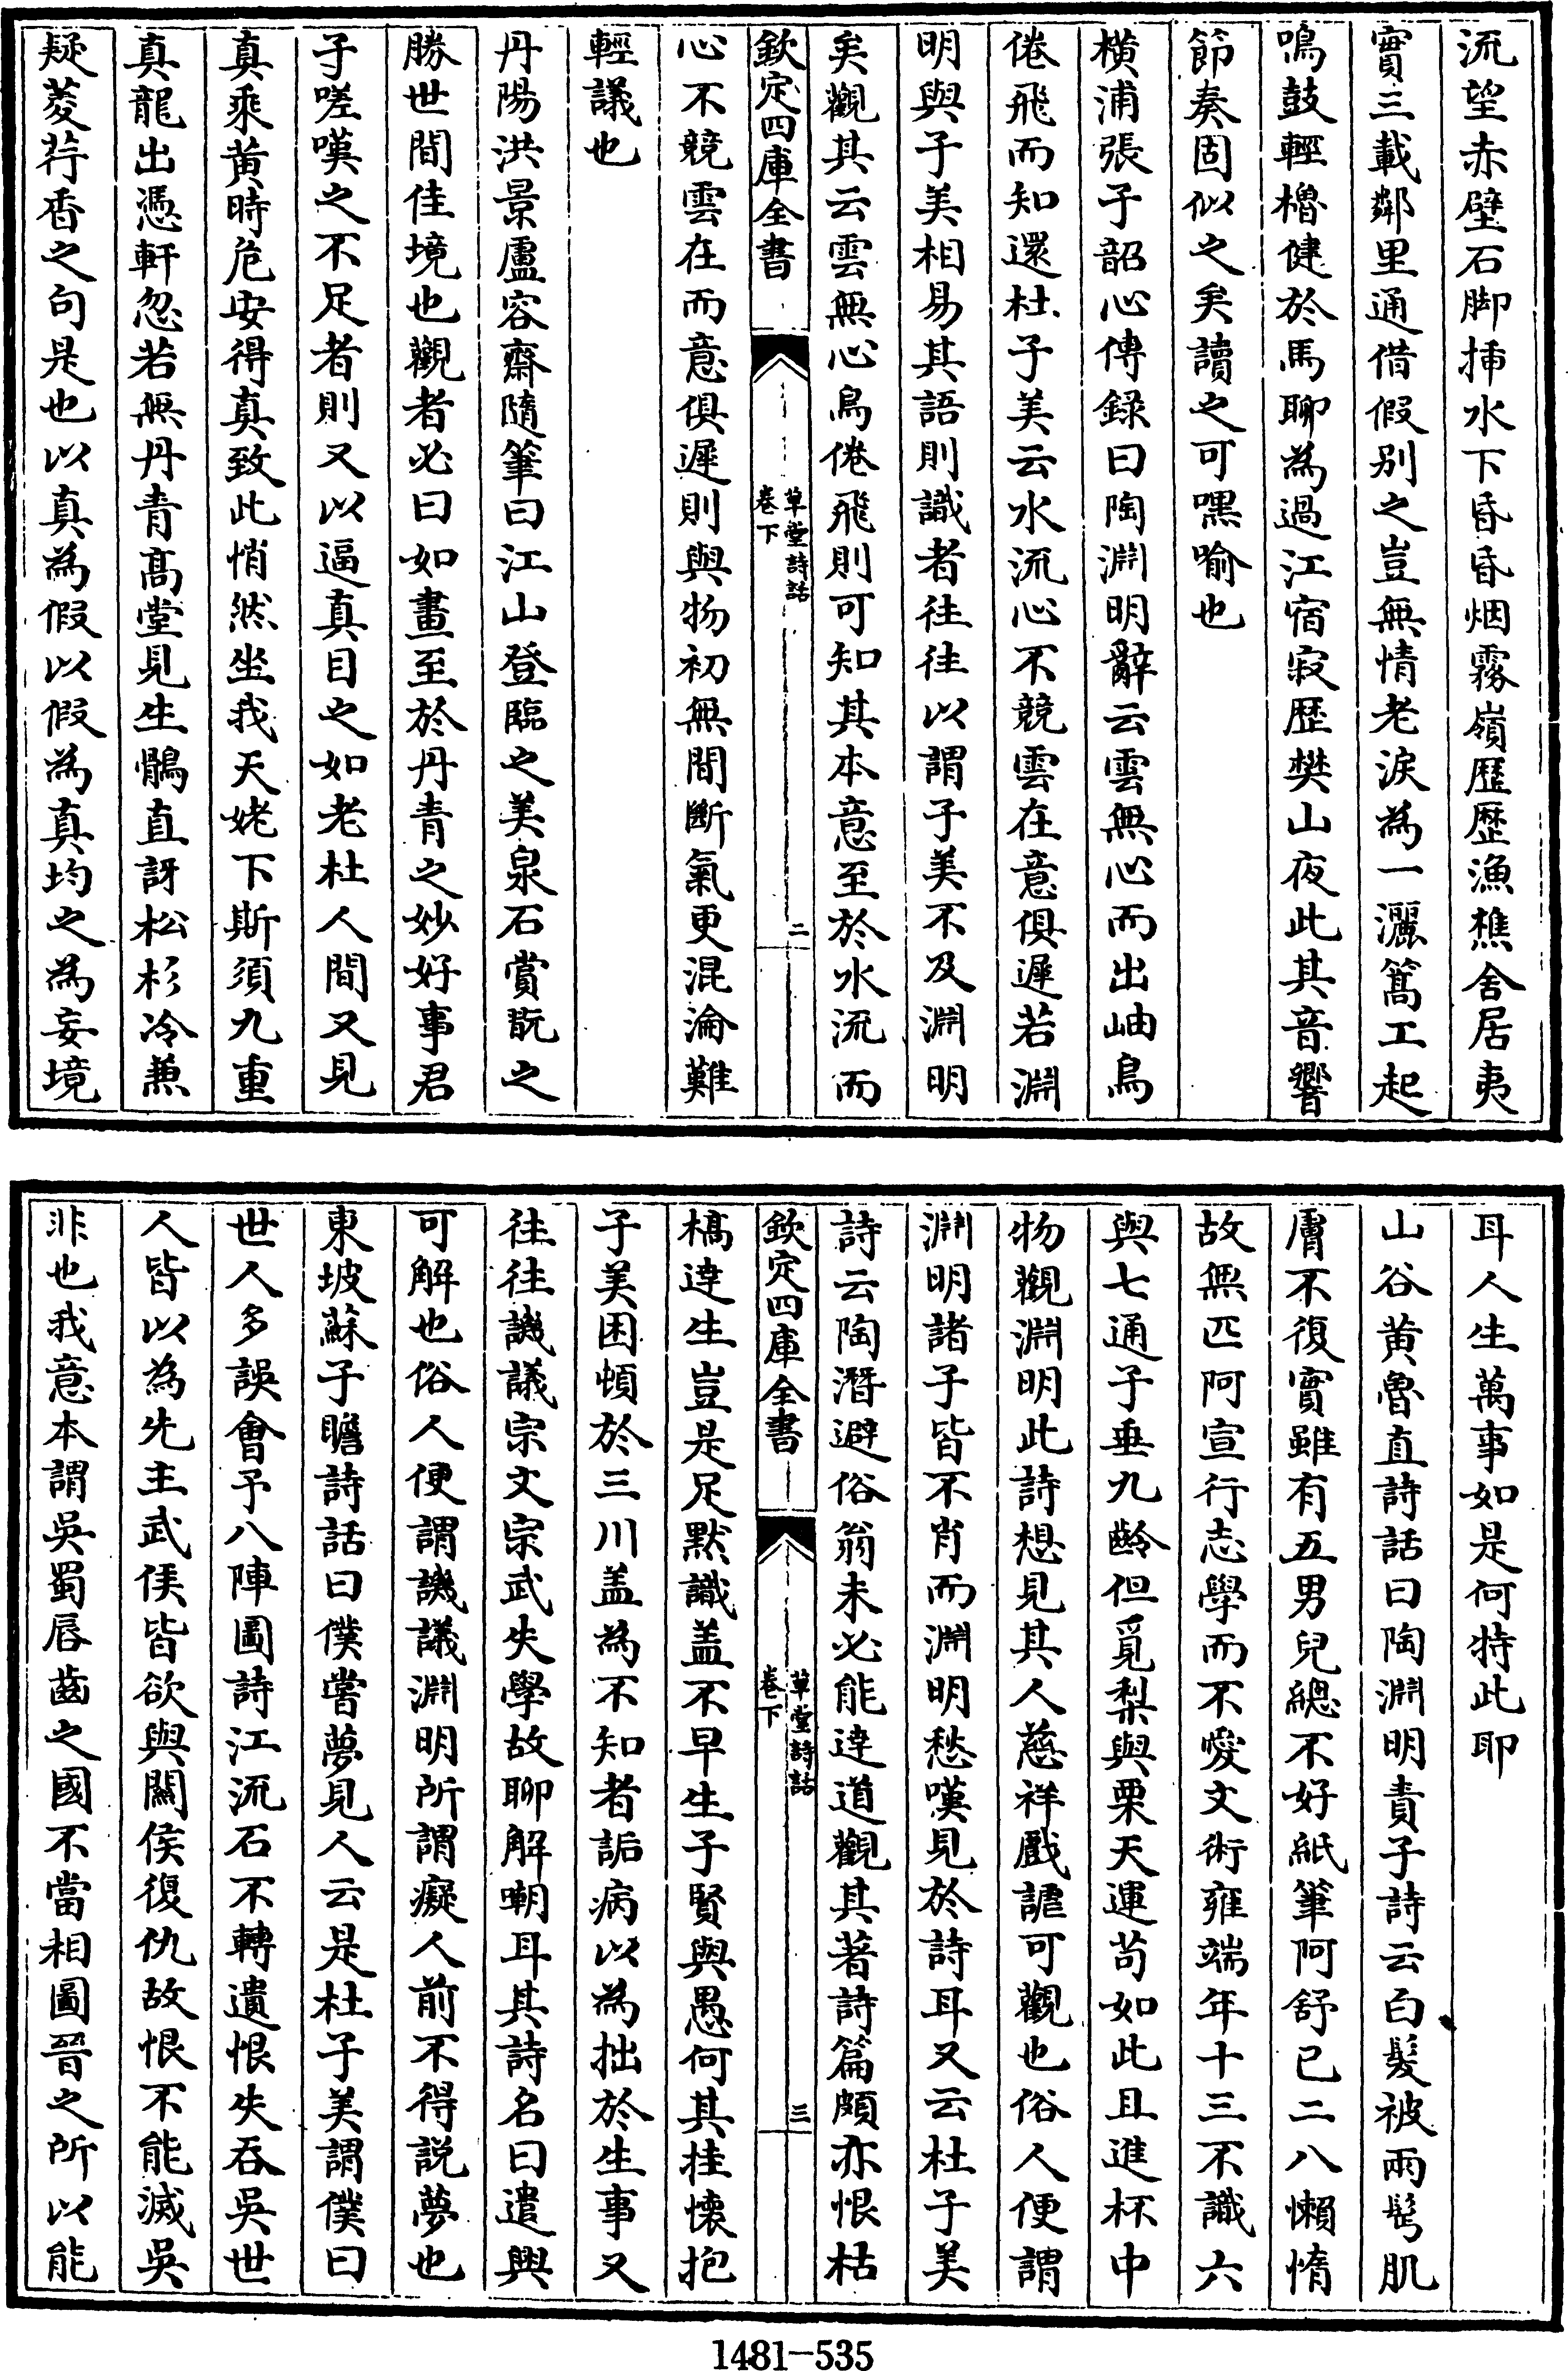 流望赤壁石脚揷水下昏昏烟霧嶺歴歴漁樵舍居夷
實三載鄰里通借假别之豈無情老淚為一灑篙工起
鳴鼓輕櫓健於馬聊為過江宿寂歴樊山夜此其音響
節奏固似之矣讀之可嘿喻也
橫浦張子韶心傳録曰陶淵明辭云雲無心而出岫鳥
倦飛而知還杜子美云水流心不競雲在意俱遲若淵
明與子美相易其語則識者往往以謂子美不及淵明
矣觀其云雲無心鳥倦飛則可知其本意至於水流而
欽定四庫全書
草堂詩話
卷下
二
心不競雲在而意俱遲則與物初無間斷氣更混淪難
輕議也
丹陽洪景盧容齋隨筆曰江山登臨之美泉石賞翫之
勝世間佳境也觀者必曰如畫至於丹青之妙好事君
子嗟嘆之不足者則又以逼真目之如老杜人間又見
真乘黄時危安得真致此悄然坐我天姥下斯須九重
真龍出憑軒忽若無丹青髙堂見生鶻直訝松杉冷兼
疑菱荇香之句是也以真為假以假為真均之為妄境
耳人生萬事如是何特此耶
山谷黄魯直詩話曰陶淵明責子詩云白髮被兩鬂肌
膚不復實雖有五男兒總不好紙筆阿舒已二八懶惰
故無匹阿宣行志學而不愛文術雍端年十三不識六
與七通子垂九齡但覓梨與栗天運苟如此且進杯中
物觀淵明此詩想見其人慈祥戲謔可觀也俗人便謂
淵明諸子皆不肖而淵明愁嘆見於詩耳又云杜子美
詩云陶潛避俗翁未必能逹道觀其著詩篇頗亦恨枯
欽定四庫全書
草堂詩話
卷下
三
槁逹生豈是足默識盖不早生子賢與愚何其挂懐抱
子美困頓於三川盖為不知者詬病以為拙於生事又
往往譏議宗文宗武失學故聊解嘲耳其詩名曰遣興
可解也俗人便謂譏議淵明所謂癡人前不得説夢也
東坡蘇子瞻詩話曰僕嘗夢見人云是杜子美謂僕曰
世人多誤會予八陣圖詩江流石不轉遺恨失吞吳世
人皆以為先主武侯皆欲與關侯復仇故恨不能滅吳
非也我意本謂吳蜀唇齒之國不當相圖晉之所以能
1481-535